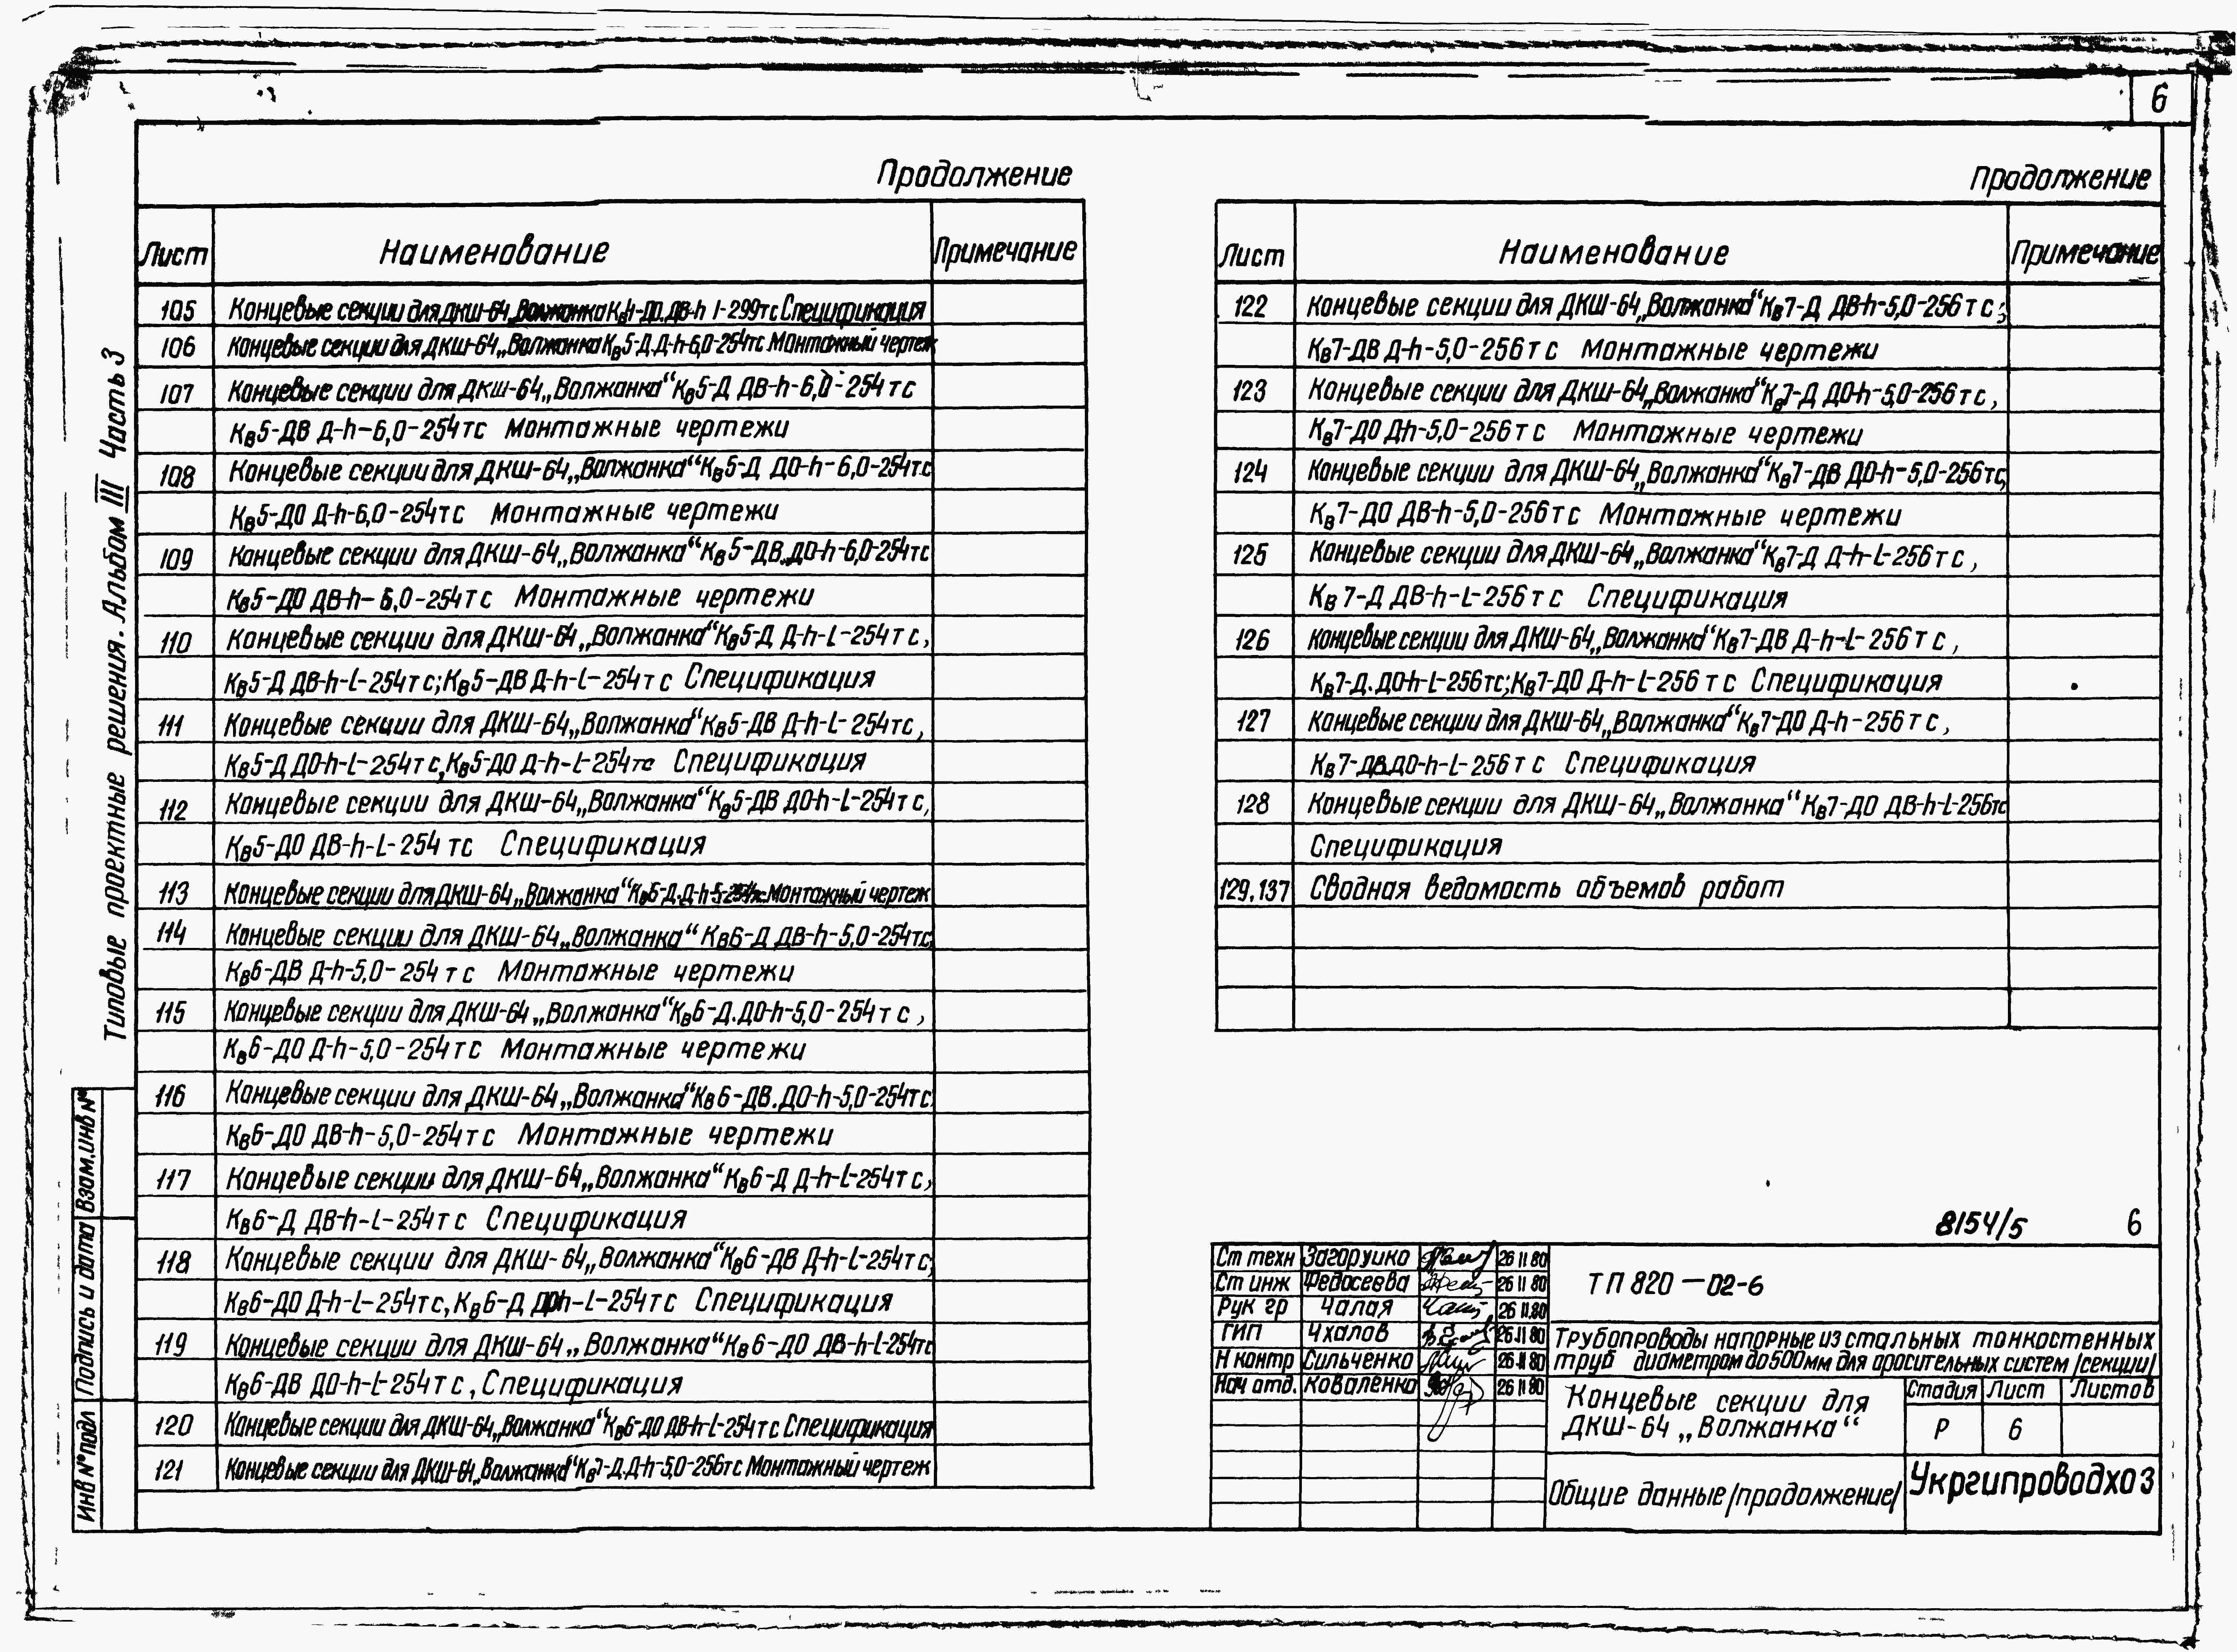 6
Продолжение
Лист Наименование Примечание
105 Концевые секции для ДКШ-64 „Волжанка Кв4-ДО.ДВ-h l-299тс Спецификация
106 Концевые секции для ДКШ-64 „Волжанка Кв5-Д.Д-h-6,0-254тс Монтажный чертеж
107 Концевые секции для ДКШ-64 „Волжанка“ Кв5-Д ДВ-h-6,0-254тс
Кв5-ДВ Д-h-6,0-254тс Монтажные чертежи
108 Концевые секции для ДКШ-64 „Волжанка“ Кв5-Д ДО-h-6,0-254тс
Кв5-ДО Д-h-6,0-254тс Монтажные чертежи
109 Концевые секции для ДКШ-64 „Волжанка“ Кв5-ДВ.ДО-h-6,0-254тс
Кв5-ДО ДВ-h-6,0-254тс Монтажные чертежи
110 Концевые секции для ДКШ-64 „Волжанка“ Кв5-Д Д-h-l-254тс,
Кв5-Д ДВ-h-l-254тс; Кв5-ДВ Д-h-l-254тс Спецификация
111 Концевые секции для ДКШ-64 „Волжанка“ Кв5-ДВ Д-h-l-254тс,
Кв5-Д ДО-h-l-254тс, Кв5-ДО Д-h-l-254тс Спецификация
112 Концевые секции для ДКШ-64 „Волжанка“ Кв5-ДВ ДО-h-l-254тс,
Кв5-ДО ДВ-h-l-254 тс Спецификация
113 Концевые секции для ДКШ-64 „Волжанка“ Кв6-Д.Д-h-5-254тс Монтажный чертеж
114 Концевые секции для ДКШ-64 „Волжанка“ Кв6-Д ДВ-h-5,0-254тс,
Кв6-ДВ Д-h-5,0-254 тс Монтажные чертежи
115 Концевые секции для ДКШ-64 „Волжанка“ Кв6-Д.ДО-h-5,0-254тс,
Кв6-ДО Д-h-5,0-254тс Монтажные чертежи
116 Концевые секции для ДКШ-64 „Волжанка“ Кв6-ДВ.ДО-h-5,0-254тс.
Кв6-ДО ДВ-h-5,0-254тс Монтажные чертежи
117 Концевые секции для ДКШ-64 „Волжанка“ Кв6-Д Д-h-l-254тс,
Кв6-Д ДВ-h-l-254тс Спецификация
118 Концевые секции для ДКШ-64 „Волжанка“ Кв6-ДВ Д-h-l-254тс,
Кв6-ДО Д-h-l-254тс, Кв6-Д ДОh-l-254тс Спецификация
119 Концевые секции для ДКШ-64 „Волжанка“ Кв6-ДО ДВ-h-l-254тс
Кв6-ДВ ДО-h-l-254тс, Спецификация
120 Концевые секции для ДКШ-64 „Волжанка“ Кв6-ДО ДВ-h-l-254тс Спецификация
121 Концевые секции для ДКШ-64 „Волжанка“ Кв7-Д.Д-h-5,0-256тс Монтажный чертеж
Продолжение
Лист Наименование Примечание
122 Концевые секции для ДКШ-64 „Волжанка“ Кв7-Д ДВ-h-5,0-256тс;
Кв7-ДВ Д-h-5,0-256тс Монтажные чертежи
123 Концевые секции для ДКШ-64 „Волжанка“ Кв7-Д ДО-h-5,0-256тс,
Кв7-ДО Дh-5,0-256тс Монтажные чертежи
124 Концевые секции для ДКШ-64 „Волжанка“ Кв7-ДВ ДО-h-5,0-256тс,
Кв7-ДО ДВ-h-5,0-256тс Монтажные чертежи
125 Концевые секции для ДКШ-64 „Волжанка“ Кв7-Д Д-h-l-256тс,
Кв7-Д ДВ-h-l-256тс Спецификация
126 Концевые секции для ДКШ-64 „Волжанка“ Кв7-ДВ Д-h-l-256тс,
Кв7-Д.ДО-h-l-256тс; Кв7-ДО Д-h-l-256тс Спецификация
127 Концевые секции для ДКШ-64 „Волжанка“ Кв7-ДО Д-h-256тс,
Кв7-ДВ.ДО-h-l-256тс Спецификация
128 Концевые секции для ДКШ-64 „Волжанка“ Кв7-ДО ДВ-h-l-256тс
Спецификация
129.137 Сводная ведомость объемов работ
Типовые проектные решения. Альбом III Часть 3
Взам.инв №
Подпись и дата
Инв № подл
8154/5 6
Ст техн Загоруико 26 11 80
Ст инж Федосеева 26 11 80
Рук гр Чалая 26 11.80
ГИП Чхалов 26.11 80
Н контр Сильченко 26.11 80
Нач отд. Коваленко 26 11 80
ТП 820-02-6
Трубопроводы напорные из стальных тонкостенных
труб диаметром до 500мм для оросительных систем /секции/
Концевые секции для
ДКШ-64 „Волжанка“
Стадия Лист Листов
Р 6
Общие данные /продолжение/
Укргипроводхоз